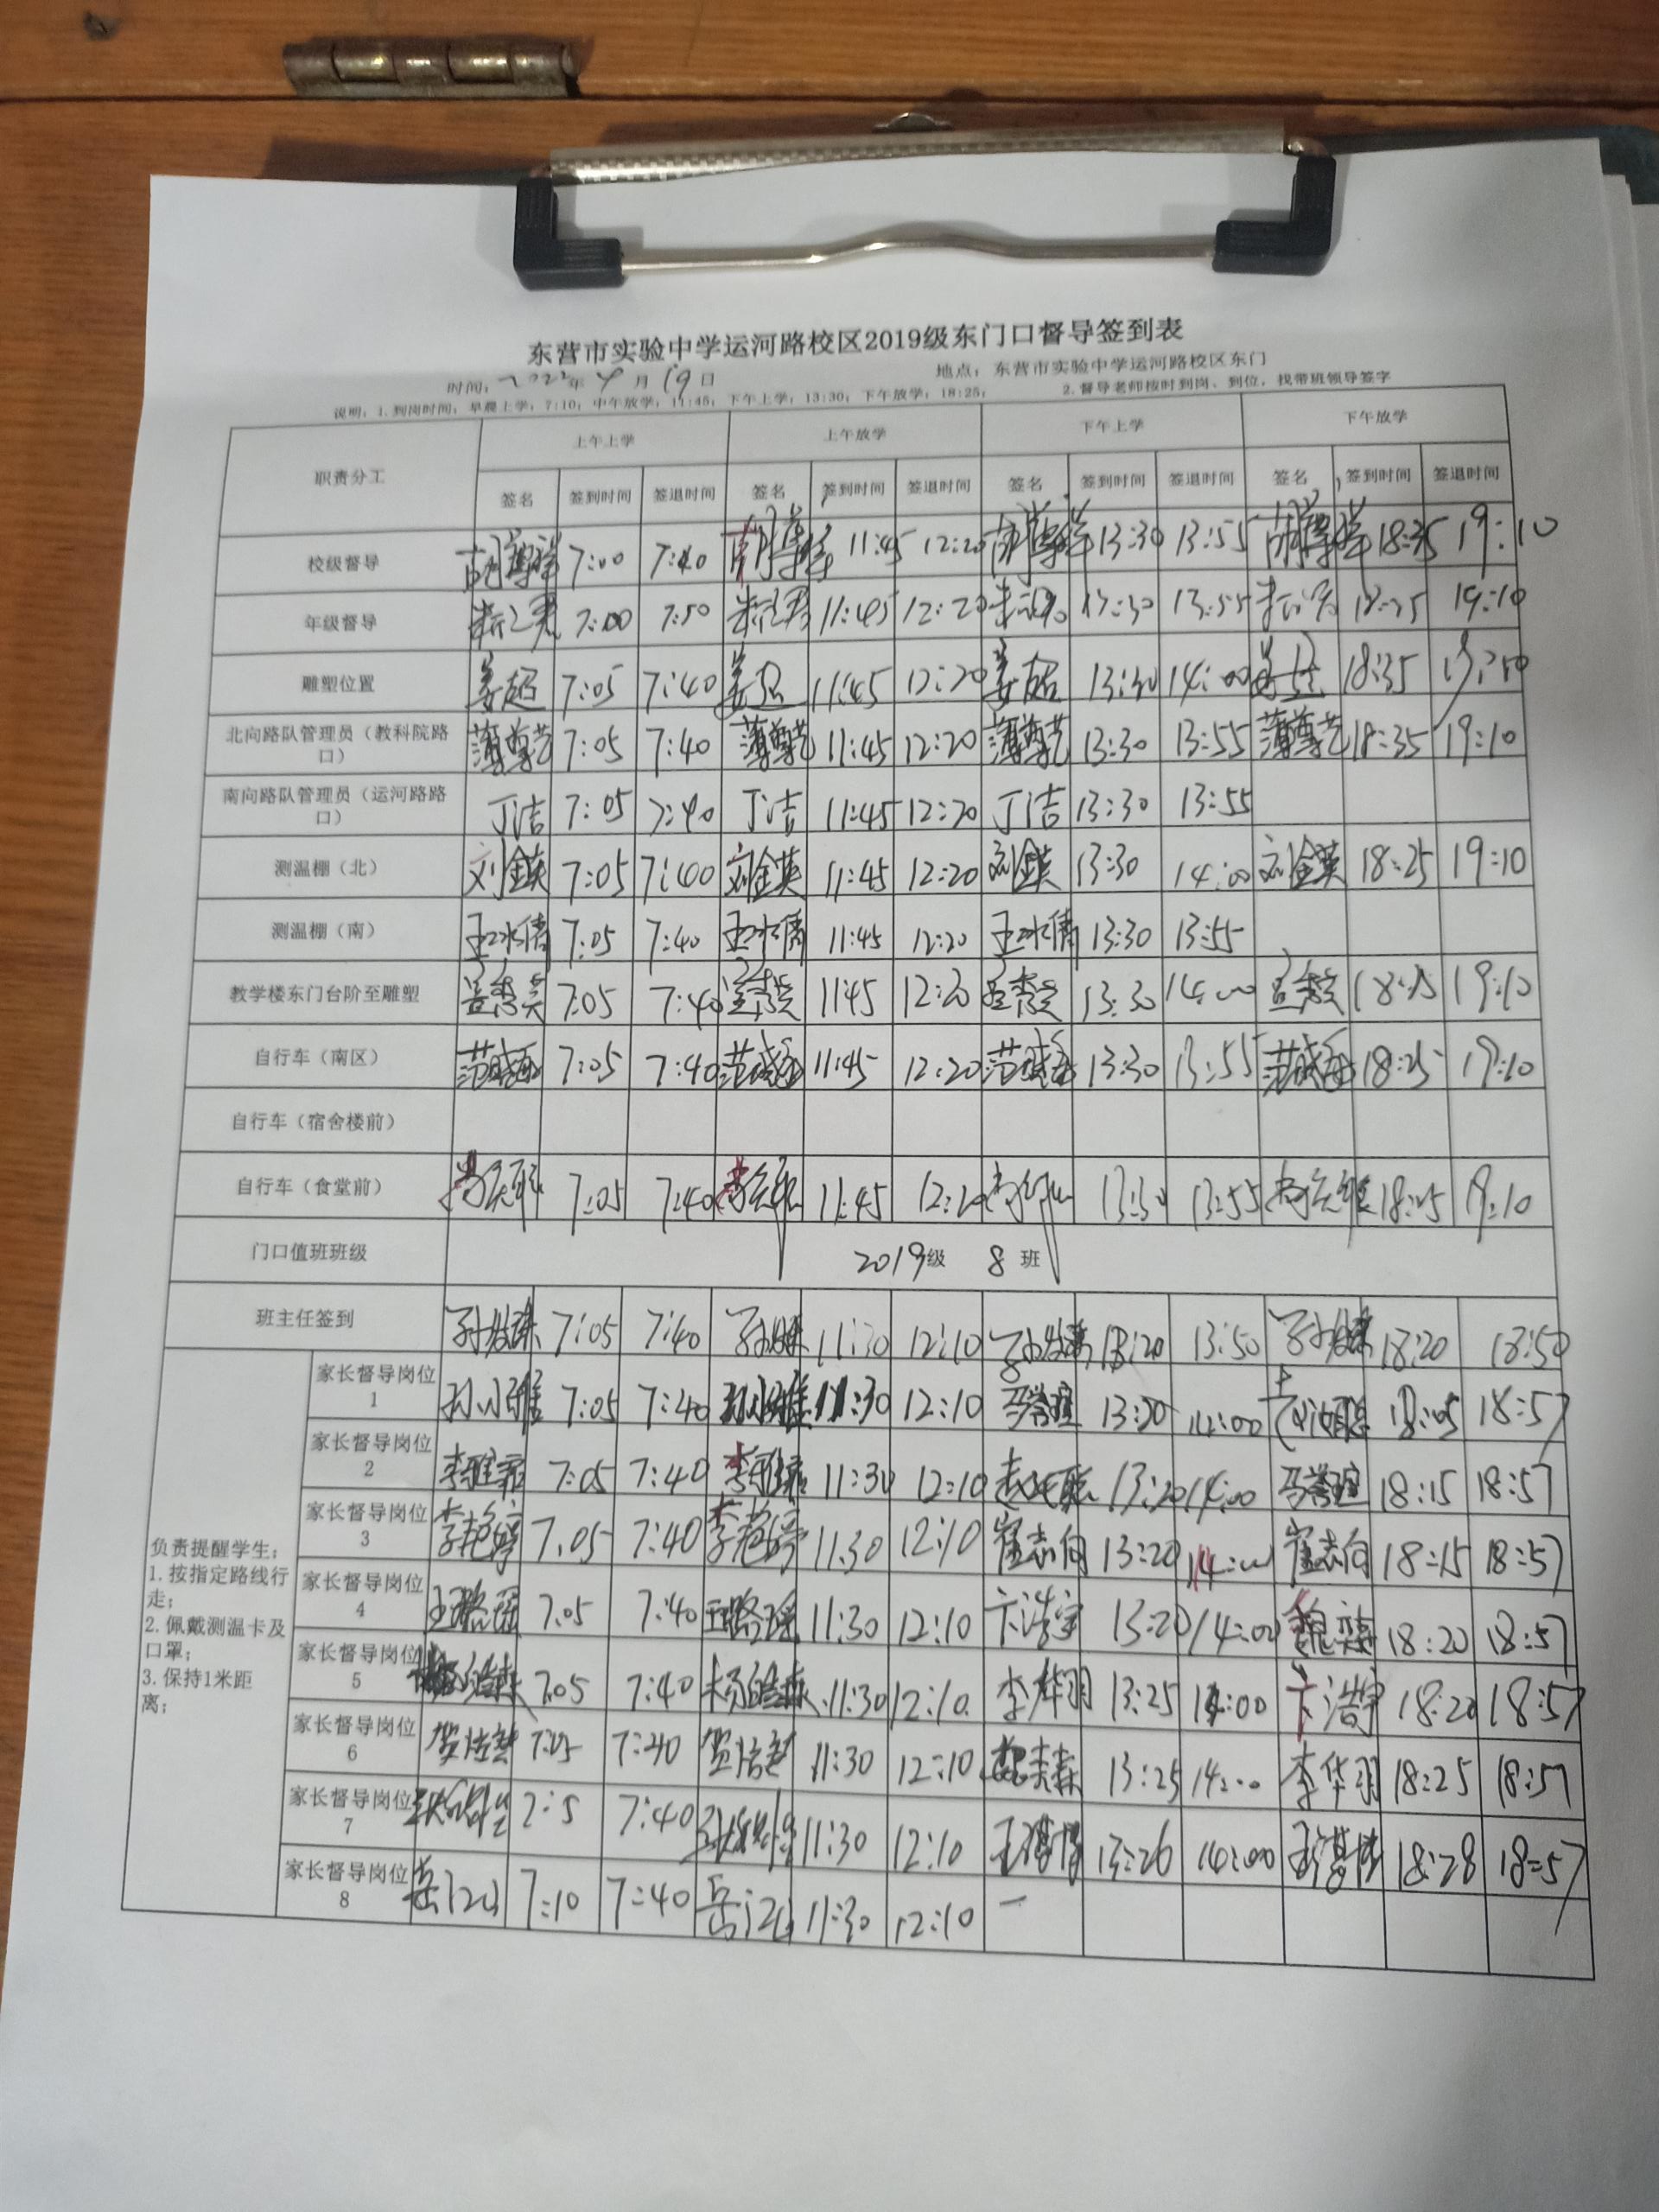 东营市实验中学运河路校区2019级东门口督导签到表
时间：2022年 4月 19日 地点：东营市实验中学运河路校区东门
说明：1.到岗时间：早晨上学：7:10；中午放学：11:45；下午上学：13:30；下午放学：18:25； 2.督导老师按时到岗、到位，找带班领导签字
职责分工 上午上学 上午放学 下午上学 下午放学
签名 签到时间 签退时间 签名 签到时间 签退时间 签名 签到时间 签退时间 签名 签到时间 签退时间
校级督导 7:00 7:40 11:45 12:20 13:30 13:55 18:35 19:10
年级督导 7:00 7:50 11:45 12:20 13:30 13:55 18:25 19:10
雕塑位置 姜超 7:05 7:40 姜超 11:45 12:20 姜超 13:30 14:00 姜超 18:35
北向路队管理员（教科院路口） 薄尊艺 7:05 7:40 薄尊艺 11:45 12:20 薄尊艺 13:30 13:55 薄尊艺 18:35 19:10
南向路队管理员（运河路路口） 丁洁 7:05 7:40 丁洁 11:45 12:20 丁洁 13:30 13:55
测温棚（北） 刘金英 7:05 7:40 刘金英 11:45 12:20 刘金英 13:30 14:00 刘金英 18:25 19:10
测温棚（南） 王冰倩 7:05 7:40 王冰倩 11:45 12:20 王冰倩 13:30 13:55
教学楼东门台阶至雕塑 7:05 7:40 11:45 12:20 13:30 14:00 18:25 19:10
自行车（南区） 7:05 7:40 11:45 12:20 13:30 13:55 18:25 19:10
自行车（宿舍楼前）
自行车（食堂前） 7:05 7:40 11:45 12:20 13:30 13:55 18:25 19:10
门口值班班级 2019级 8 班
班主任签到 7:05 7:40 11:30 12:10 13:20 13:50 18:20 18:50
负责提醒学生：
1.按指定路线行走；
2.佩戴测温卡及口罩；
3.保持1米距离；
家长督导岗位1 孙小雅 7:05 7:40 孙小雅 11:30 12:10 马誉瑄 13:20 14:00 18:05 18:57
家长督导岗位2 李雅霏 7:05 7:40 李雅霏 11:30 12:10 13:20 14:00 马誉瑄 18:15 18:57
家长督导岗位3 李艳婷 7:05 7:40 李艳婷 11:30 12:10 崔志向 13:20 14:00 崔志向 18:15 18:57
家长督导岗位4 王璐瑶 7:05 7:40 王璐瑶 11:30 12:10 卞浩宇 13:20 14:00 18:20 18:57
家长督导岗位5 7:05 7:40 11:30 12:10 李华羽 13:25 14:00 卞浩宇 18:20 18:57
家长督导岗位6 7:05 7:40 11:30 12:10 13:25 14:00 李华羽 18:25 18:57
家长督导岗位7 7:5 7:40 11:30 12:10 13:26 14:00 18:28 18:57
家长督导岗位8 7:10 7:40 11:30 12:10